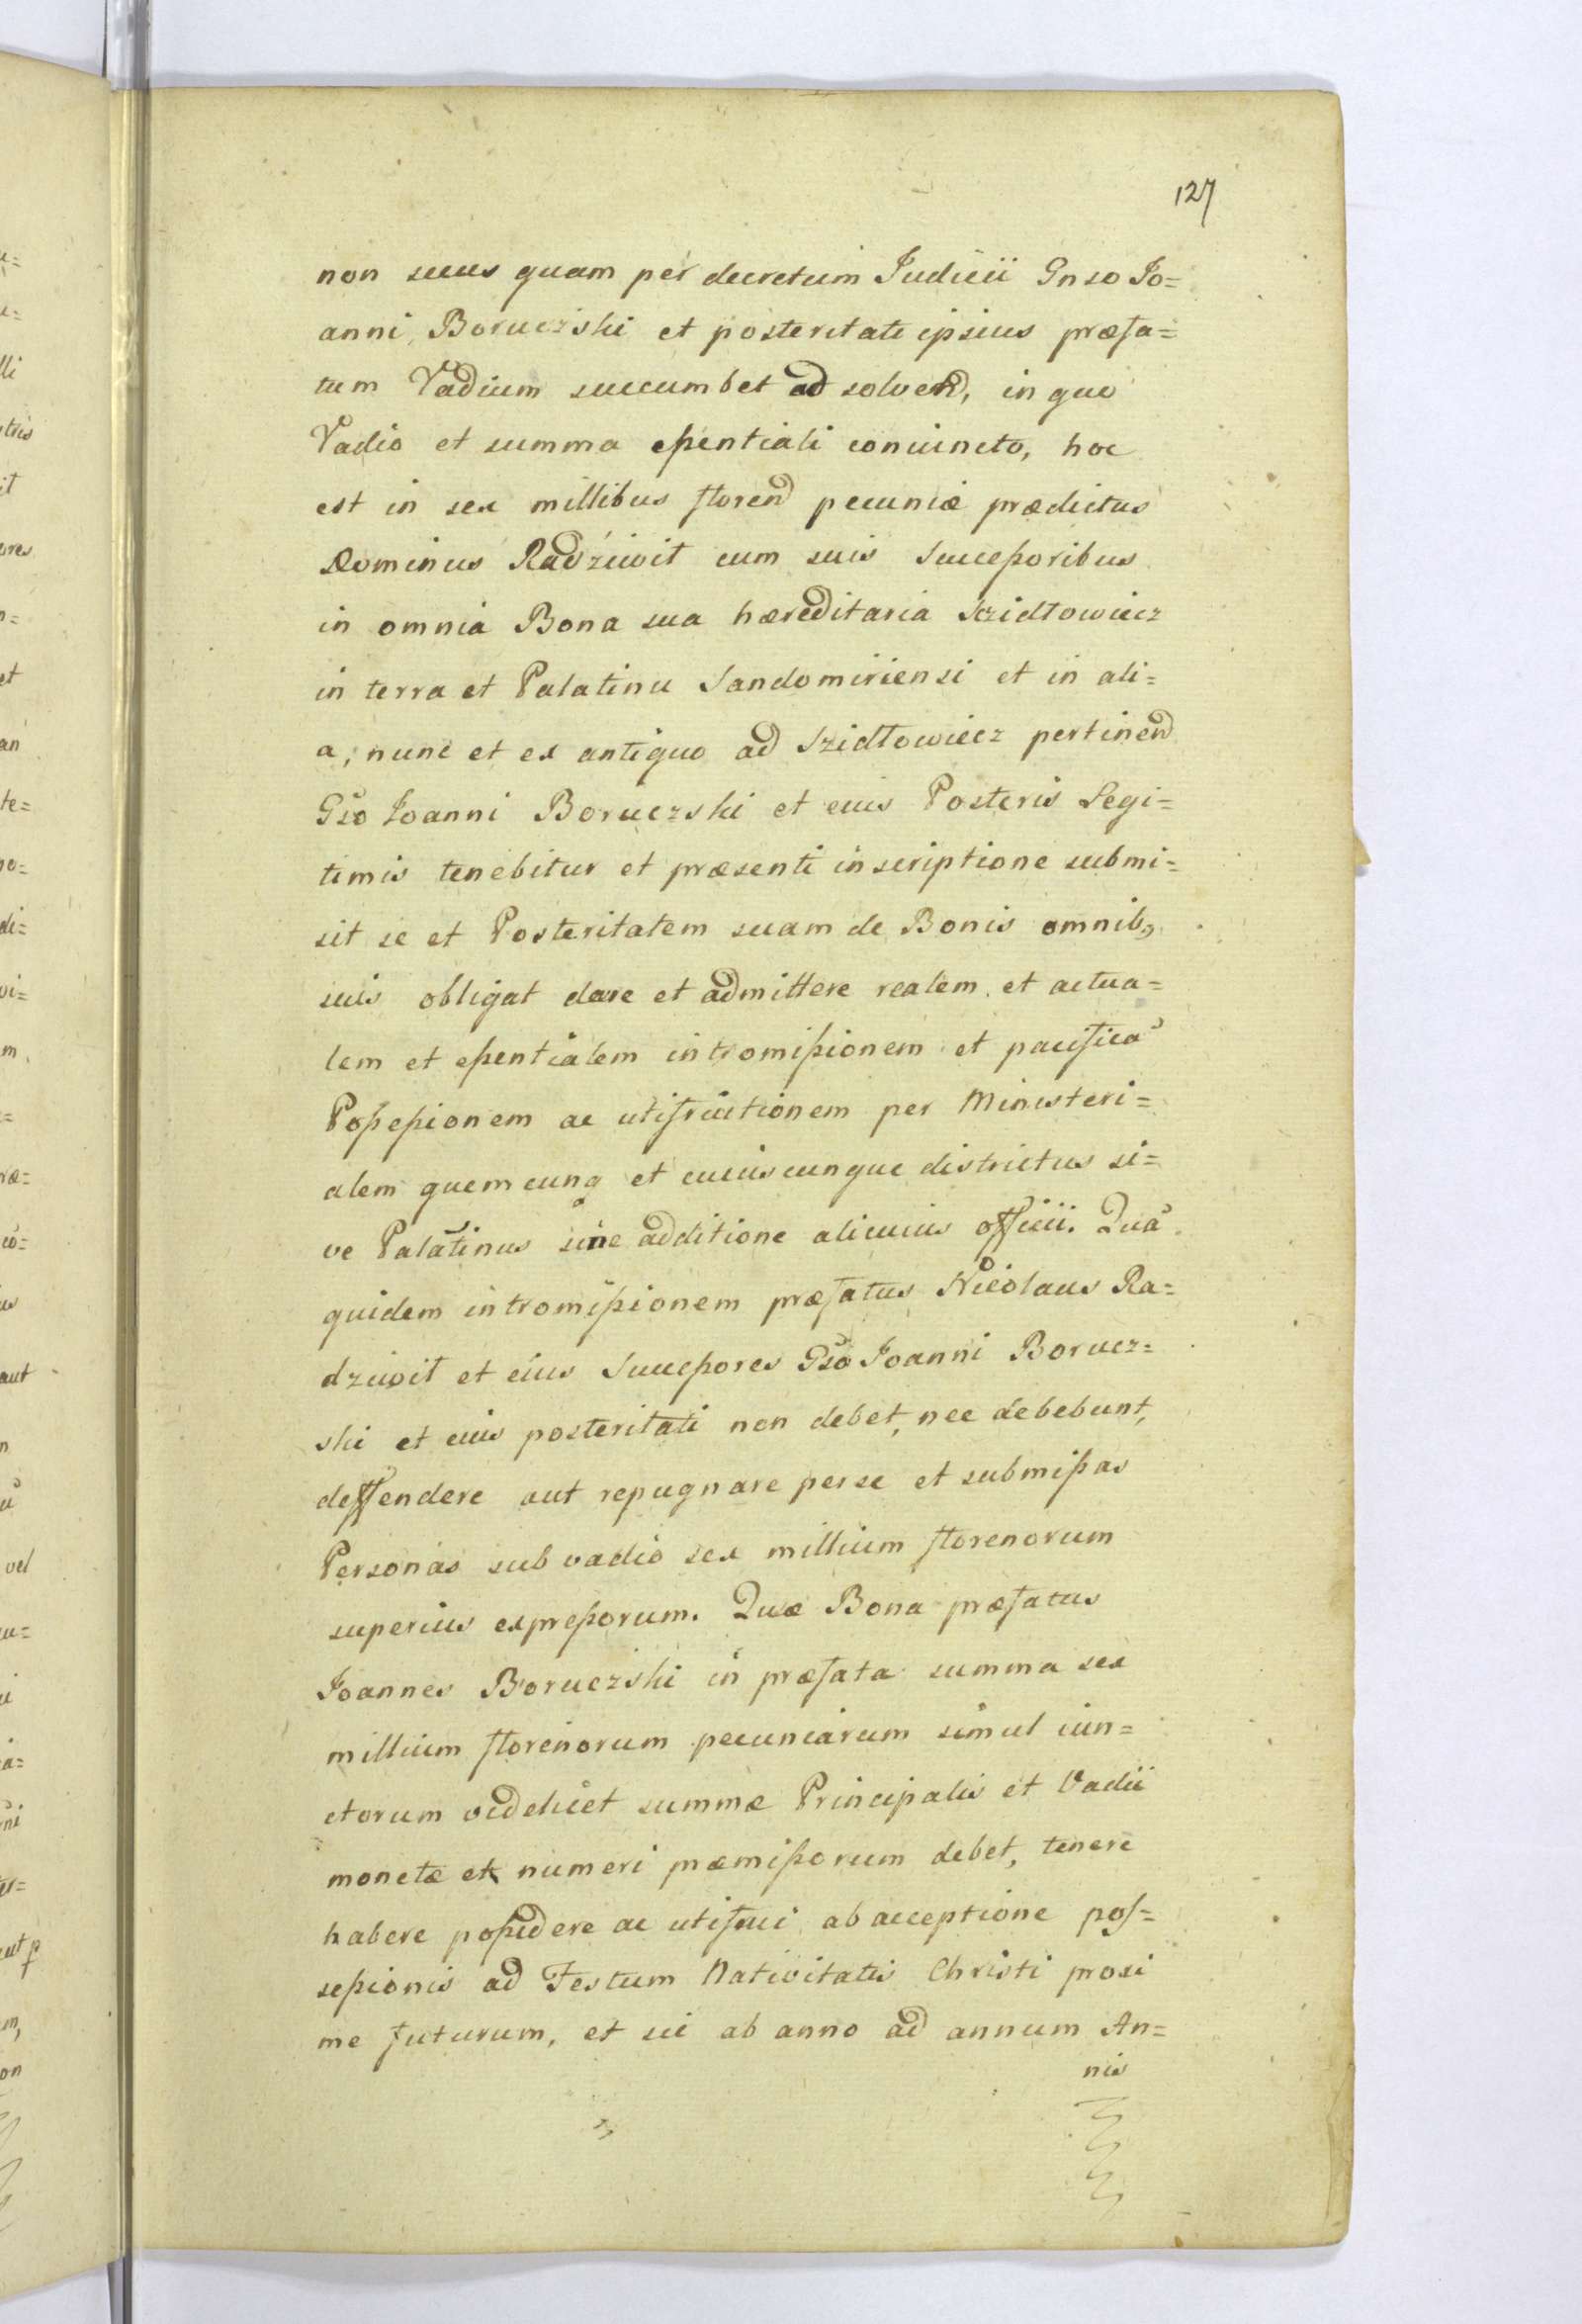 127
non secus quam per decretum Judicii Gnso Jo=
anni Boruczski et posteritate ipsius præfa=
tum Vadium succumbet ad solvend, in quo
Vadio et summa eßentiali coniuncto, hoc
est in sex millibus floren pecuniæ prædictus
Dominus Radziwił cum suis Succeßoribus
in omnia Bona sua hæreditaria Szidłowiecz
in terra et Palatinu Sandomiriensi et in ali=
a, nunc et ex antiquo ad Szidłowiecz pertinen
Gso Joanni Boruczski et eius Posteris Legi=
timis tenebitur et præsenti inscriptione submi=
sit se et Posteritatem suam de Bonis omnib,
suis obligat dare et admittere realem et actua=
lem et eßentialem intromißionem et pacifica
Poßeßionem ac utifruitionem per Ministeri=
alem quemcunq et cuiuscunque districtus si=
ve Palatinus sine additione alicuius officii. Qua
quidem intromißionem præfatus Nicolaus Ra=
dziwił et eius Succeßores Gso Joanni Borucz=
ski et eius posteritati non debet, nec debebunt,
deffendere aut repugnare per se et submißas
Personas sub vadio sex millium florenorum
superius expreßorum. Quæ Bona præfatus
Joannes Boruczski in præfata summa sex
millium florenorum pecuniarum simul iun=
ctorum videlicet summæ Principalis et Vadii
monetæ et numeri præmißorum debet, tenere
habere poßidere ac utifrui ab acceptione pos=
seßionis ad Festum Nativitatis Christi proxi
me futurum, et sic ab anno ad annum An=
nis